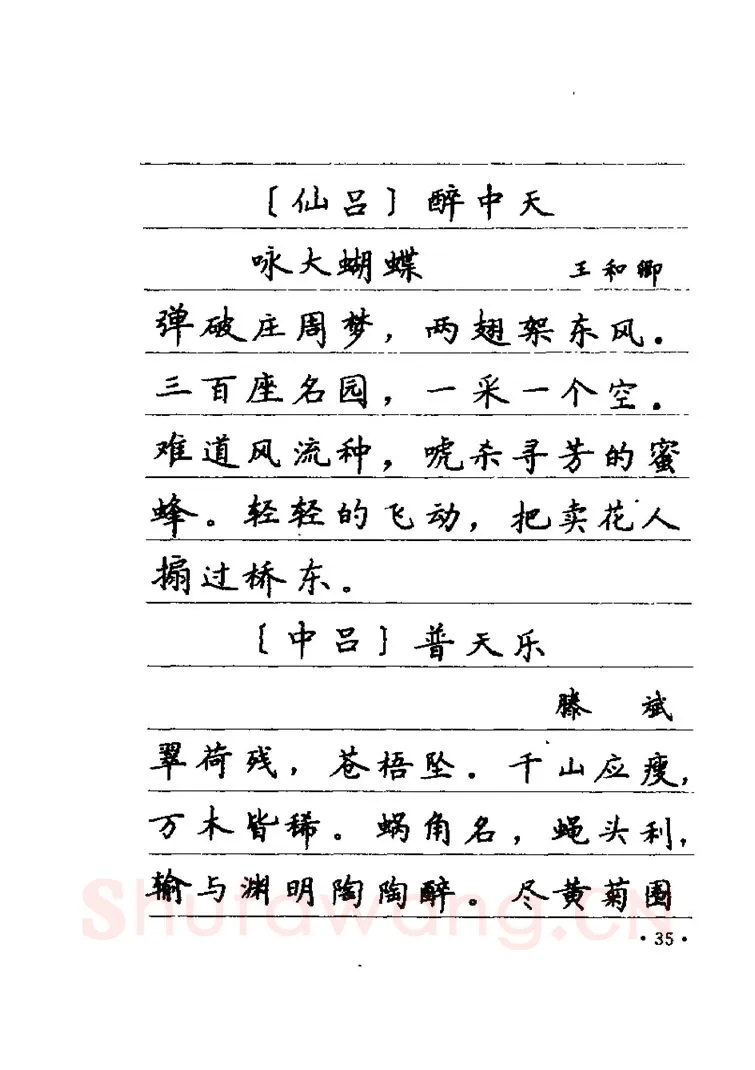 〔仙吕〕醉中天
咏大蝴蝶 王和卿
弹破庄周梦，两翅架东风。
三百座名园，一采一个空。
难道风流种，唬杀寻芳的蜜
蜂。轻轻的飞动，把卖花人
搧过桥东。
〔中吕〕普天乐
滕 斌
翠荷残，苍梧坠。千山应瘦，
万木皆稀。蜗角名，蝇头利，
输与渊明陶陶醉。尽黄菊围
Shufawang.CN
·35·